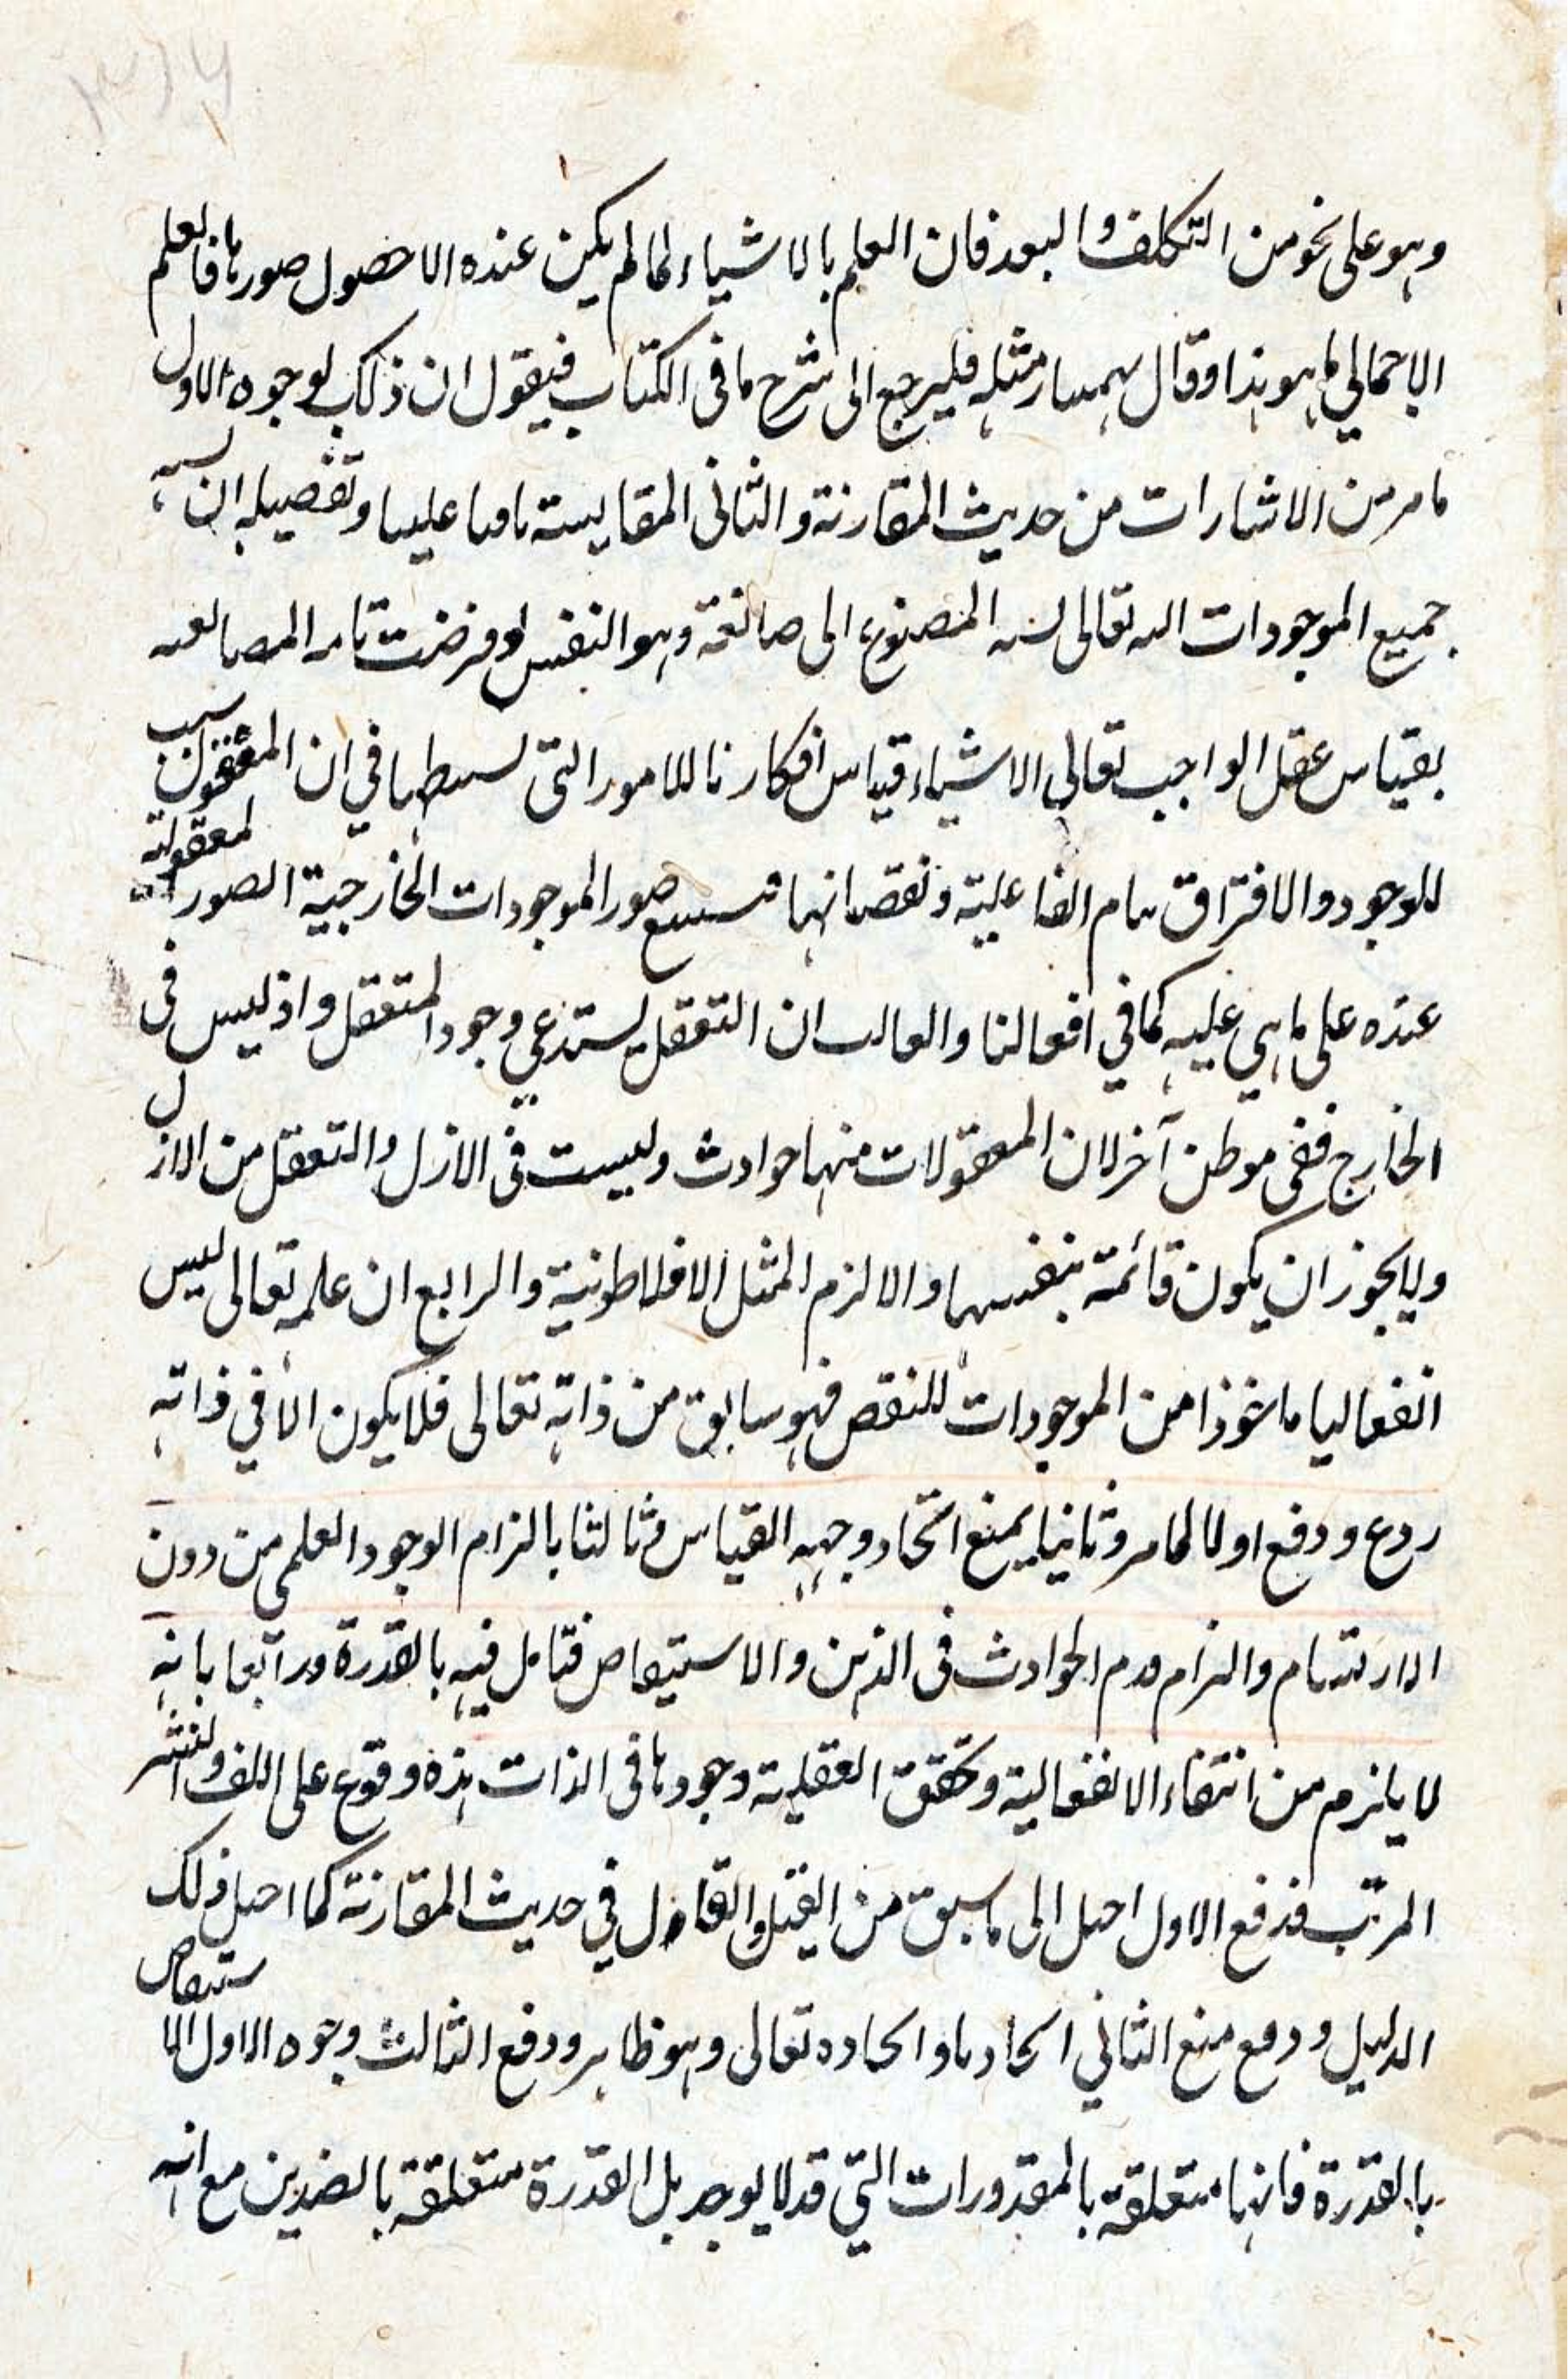 وهو على نحو من التكلف والبعد فان العلم بالاشياء لما لم يكن عنده الا حصول صورها فالعلم
الاجمالي ما هو هذا وقال بهمنيار مثله فليرجع الى شرح ما في الكتاب فيقول ان ذلك لوجوه الاول
ما مر من الاشارات من حديث المقارنة والثاني المقايسة تفصيله ان
جميع الموجودات اليه تعالى المصنوع الى صانعه وهو النفس لو فرضت تامه
بقياس عقل الواجب تعالى الاشياء قياس افكارنا للامور التى في ان المعقول سبب
للوجود والافتراق بتمام الفاعلية ونقصانها صور الموجودات الخارجية الصور المعقولة
عنده على ما هي عليه كما في افعالنا والثالث ان التعقل يستدعي وجود المتعقل واذ ليس في
الخارج ففي موطن آخر لان المعقولات منها حوادث وليست في الازل والتعقل من الازل
ولا يجوز ان يكون قائمة بنفسها والا لزم المثل الافلاطونية والرابع ان علمه تعالى ليس
انفعاليا ماخوذا من الموجودات للنقص فهو سابق من ذاته تعالى فلا يكون الا في ذاته
ردع ودفع اولا لما مر وثانيا بمنع اتحاد وجهه القياس وثالثا بالزام الوجود العلمي من دون
الارتسام والزام قدم الحوادث في الذهن والاستيعاص فتامل فيه بالقدرة ورابعا بانه
لا يلزم من انتفاء الانفعالية وتحقق العقلية وجودها في الذات هذه وقوع على اللف والنشر
المرتب فدفع الاول احيل الى ما سبق من القيل والقال في حديث المقارنة كما احيل ذلك
الدليل ودفع منع الثاني اتحادنا واتحاده تعالى وهو ظاهر ودفع الثالث وجوه الاول الاستيعاص
بالقدرة فانها متعلقة بالمقدورات التي قد لا يوجد بل القدرة متعلقة بالضدين مع انه